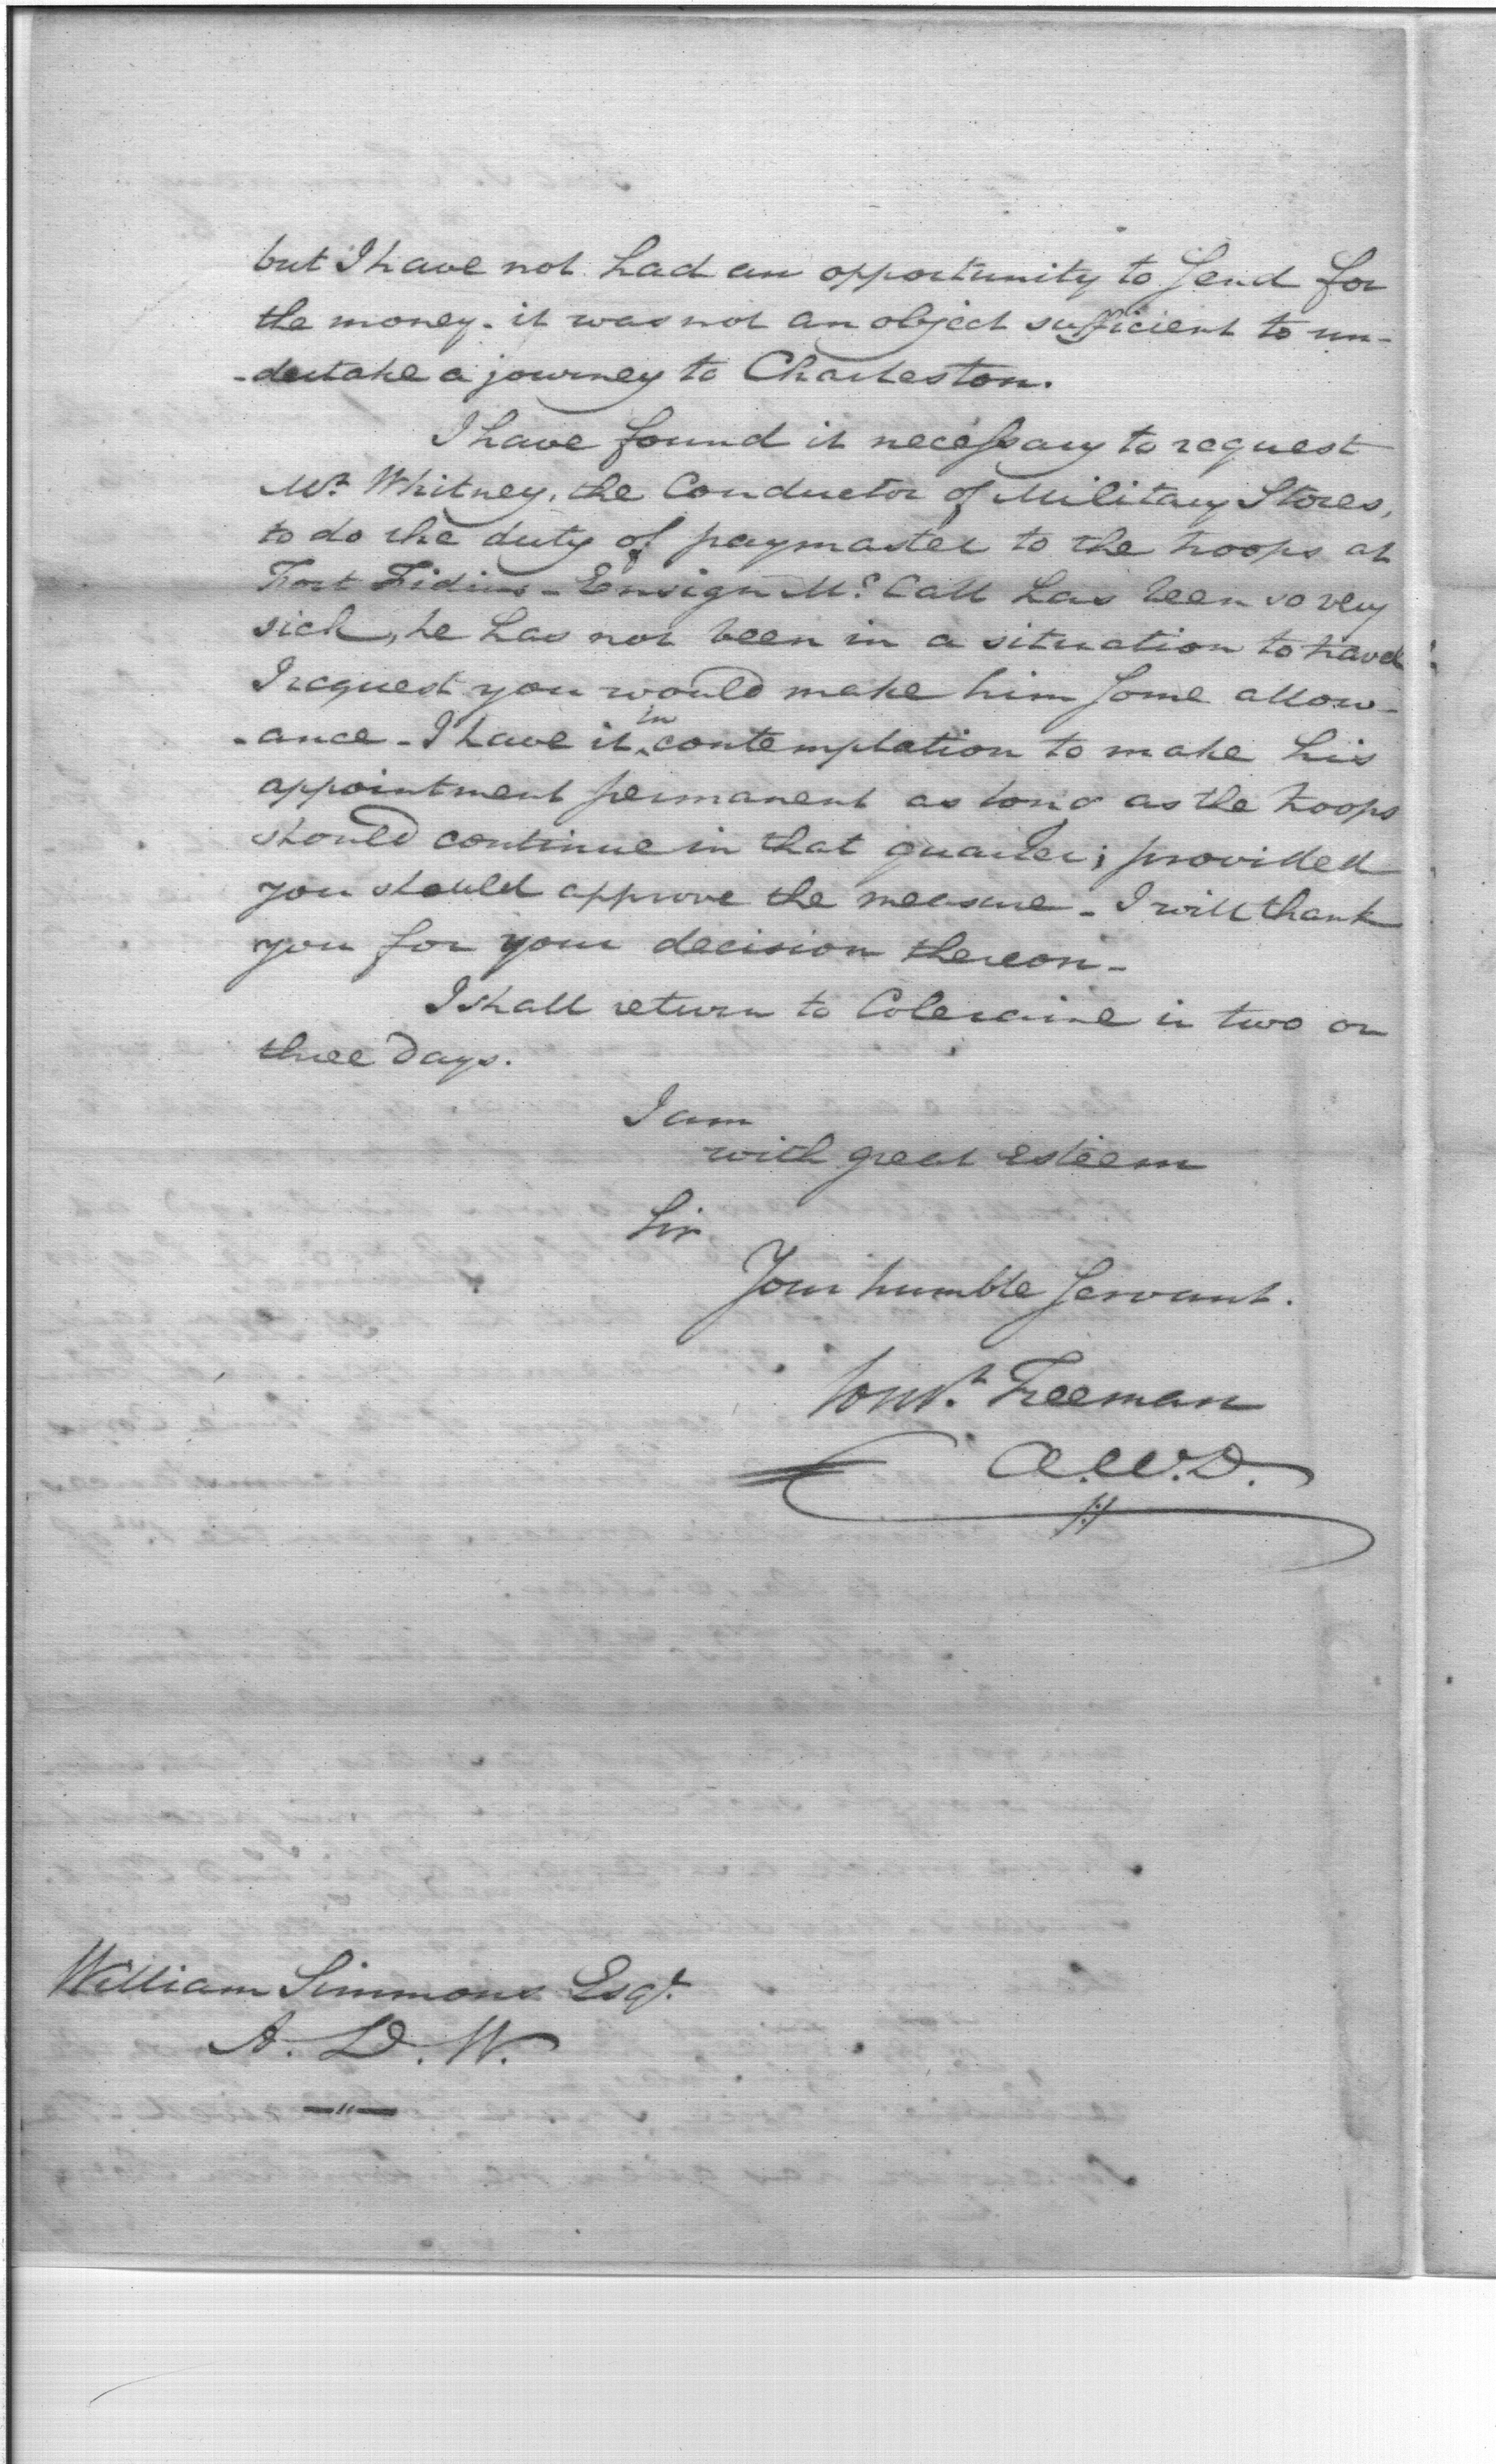 but I have not had an opportunity to send for
the money - it was not an object sufficient to un-
-dertake a journey to Charleston.
I have found it necessary to request
Mr. Whitney, the Conductor of Military Stores,
to do the duty of paymaster to the troops at
Fort Fidius - Ensign Mc. Call has been so very
sick, he has not been in a situation to travel
I request you would make him some allow-
-ance - I have it in contemplation to make his
appointment permanent as long as the troops
should continue in that quarter; provided
you should approve the measure - I will thank
you for your decision thereon -
I shall return to Coleraine in two or
three days.
I am
with great esteem
Sir
Your humble Servant.
Const. Freeman
A.W.D.
William Simmons Esqr.
A. D. W.